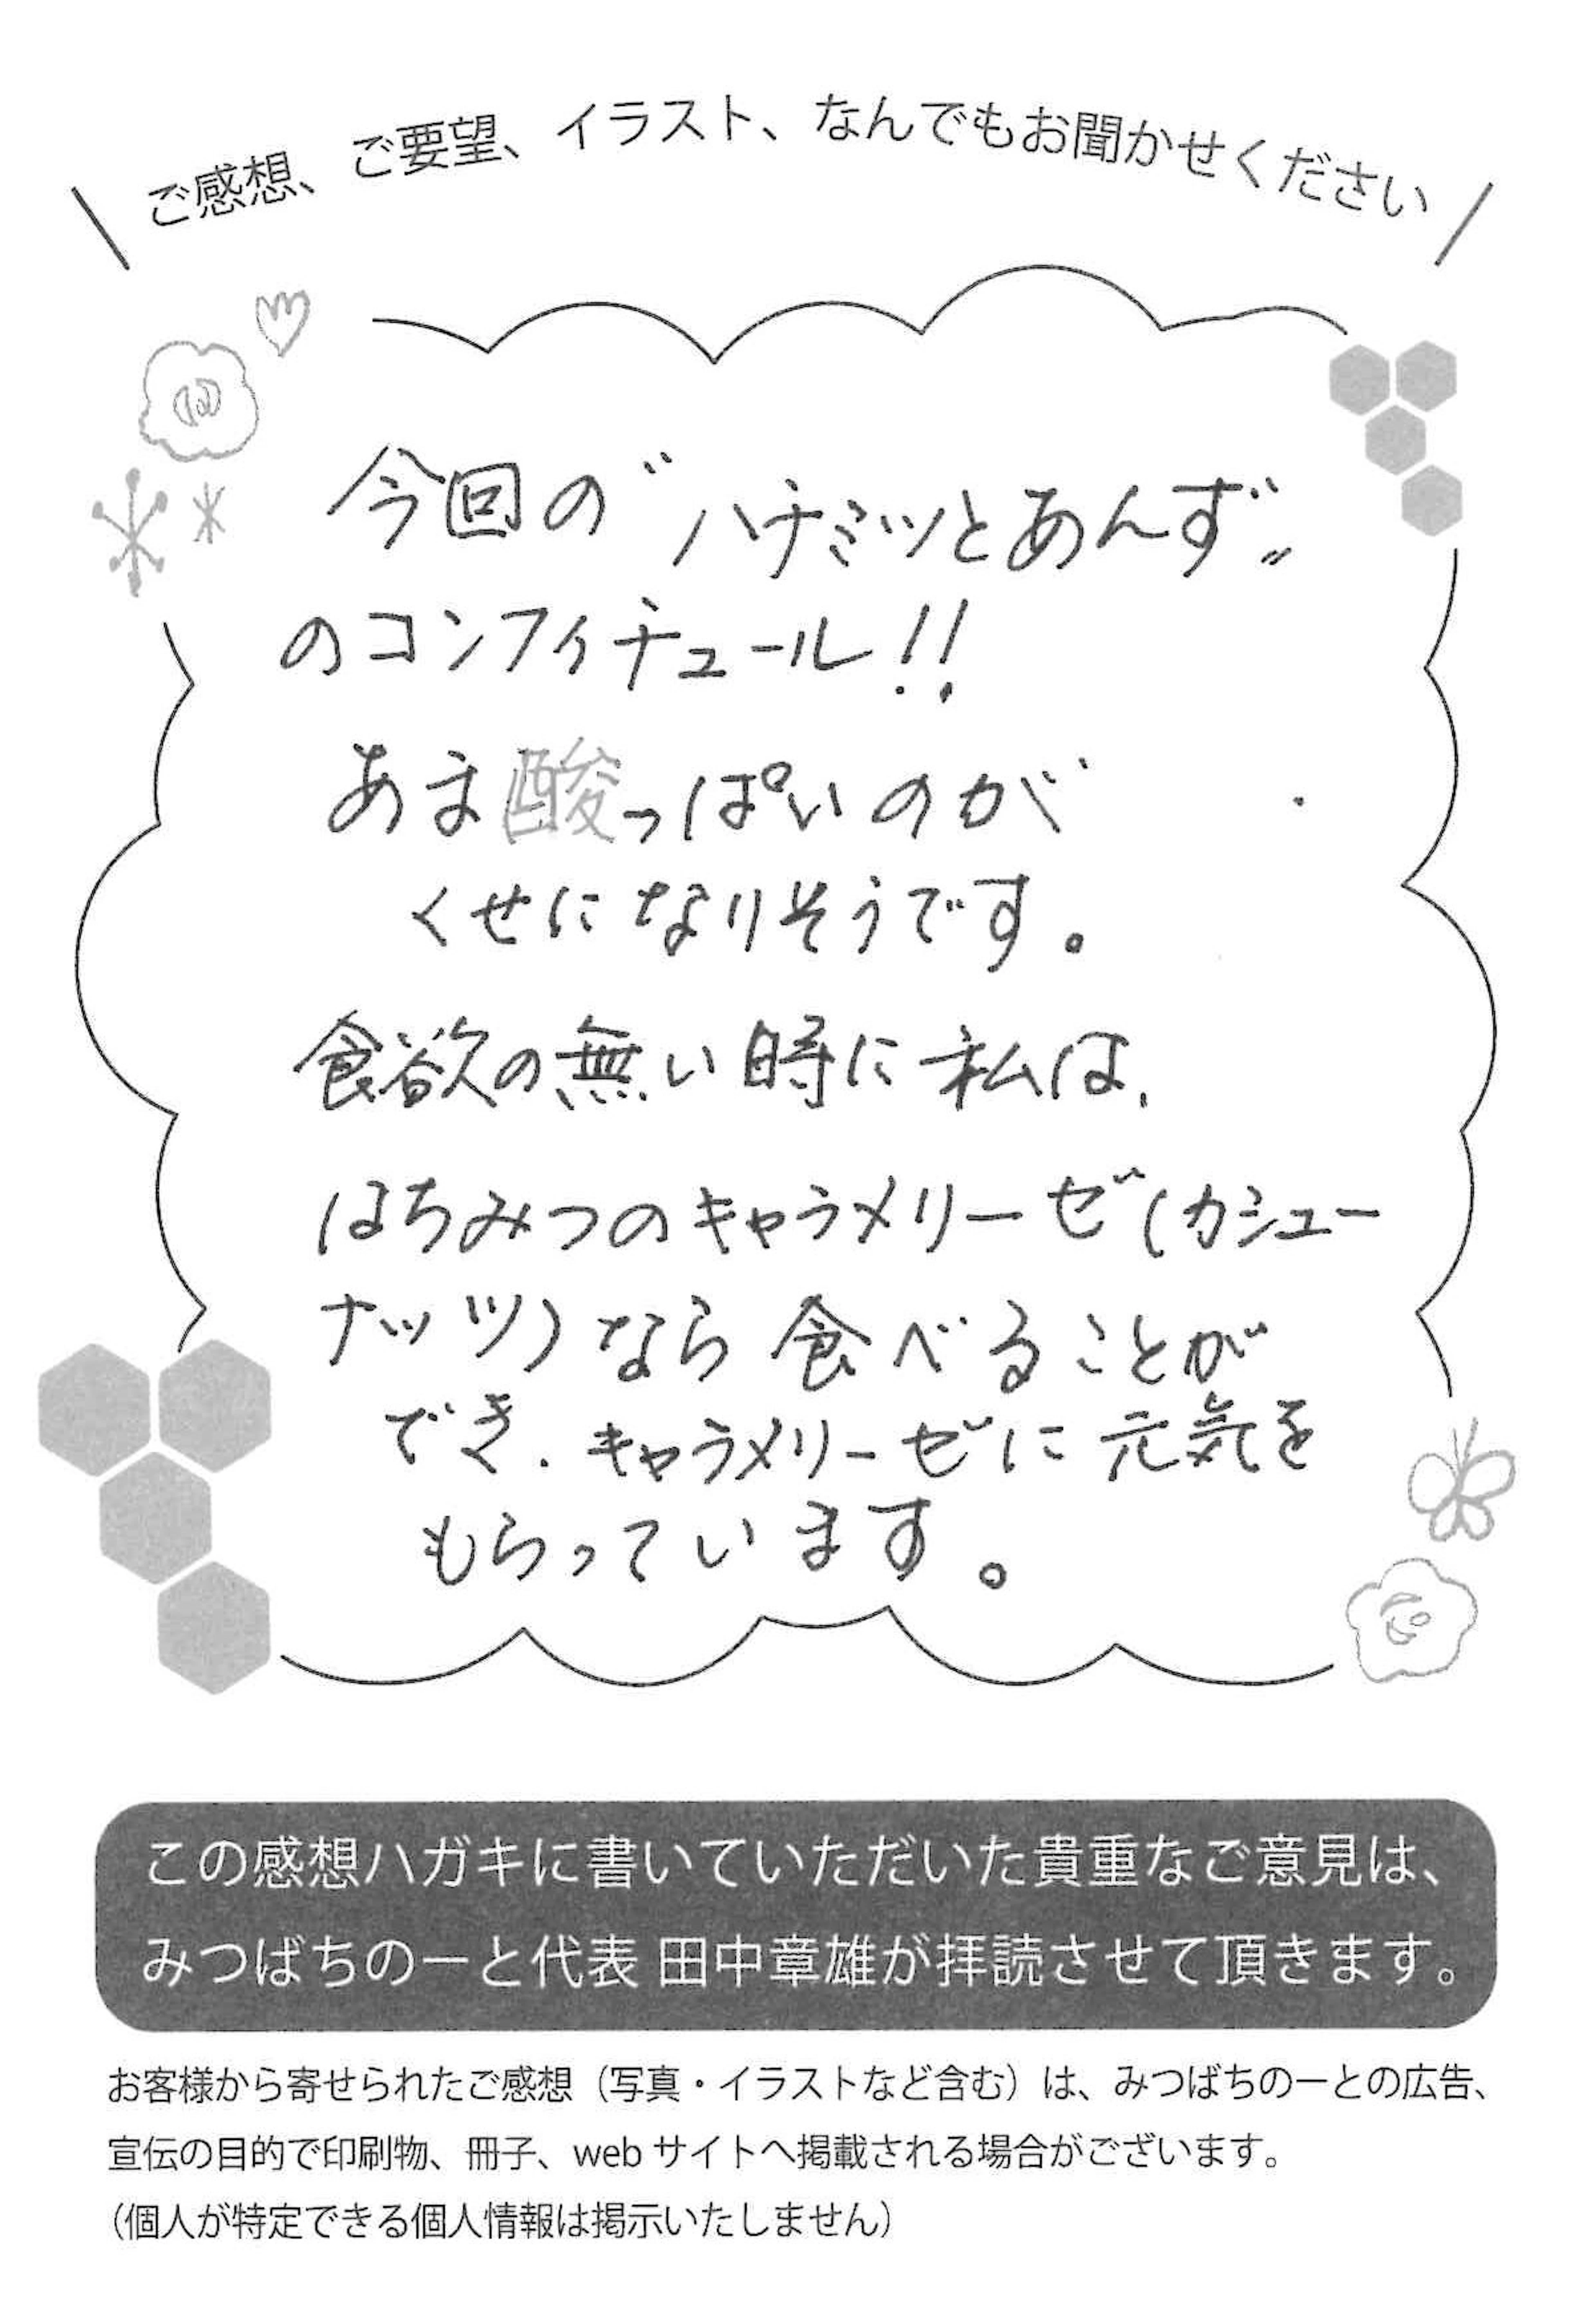 ご感想、ご要望、イラスト、なんでもお聞かせください
今回の"ハチミツとあんず"
のコンフィチュール!!
あま酸っぱいのが
くせになりそうです。
食欲の無い時に私は、
はちみつのキャラメリーゼ(カシュー
ナッツ)なら食べることが
でき、キャラメリーゼに元気を
もらっています。
この感想ハガキに書いていただいた貴重なご意見は、
みつばちのーと代表 田中章雄が拝読させて頂きます。
お客様から寄せられたご感想（写真・イラストなど含む）は、みつばちのーとの広告、
宣伝の目的で印刷物、冊子、web サイトへ掲載される場合がございます。
（個人が特定できる個人情報は掲示いたしません）